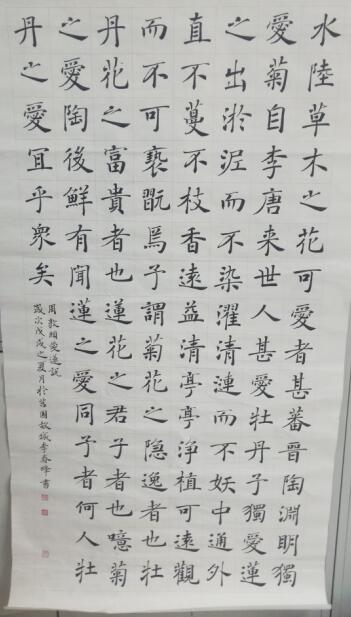 水陸草木之花可愛者甚蕃晋陶淵明獨
愛菊自李唐来世人甚愛牡丹予獨愛蓮
之出淤泥而不染濯清漣而不妖中通外
直不蔓不枝香遠益清亭亭净植可遠觀
而不可褻翫焉予謂菊花之隐逸者也牡
丹花之富貴者也蓮花之君子者也噫菊
之愛陶後鮮有聞蓮之愛同予者何人牡
丹之愛宜乎衆矣
周敦頤愛蓮説
歲次戊戌之夏月於莒國故城李春峰書